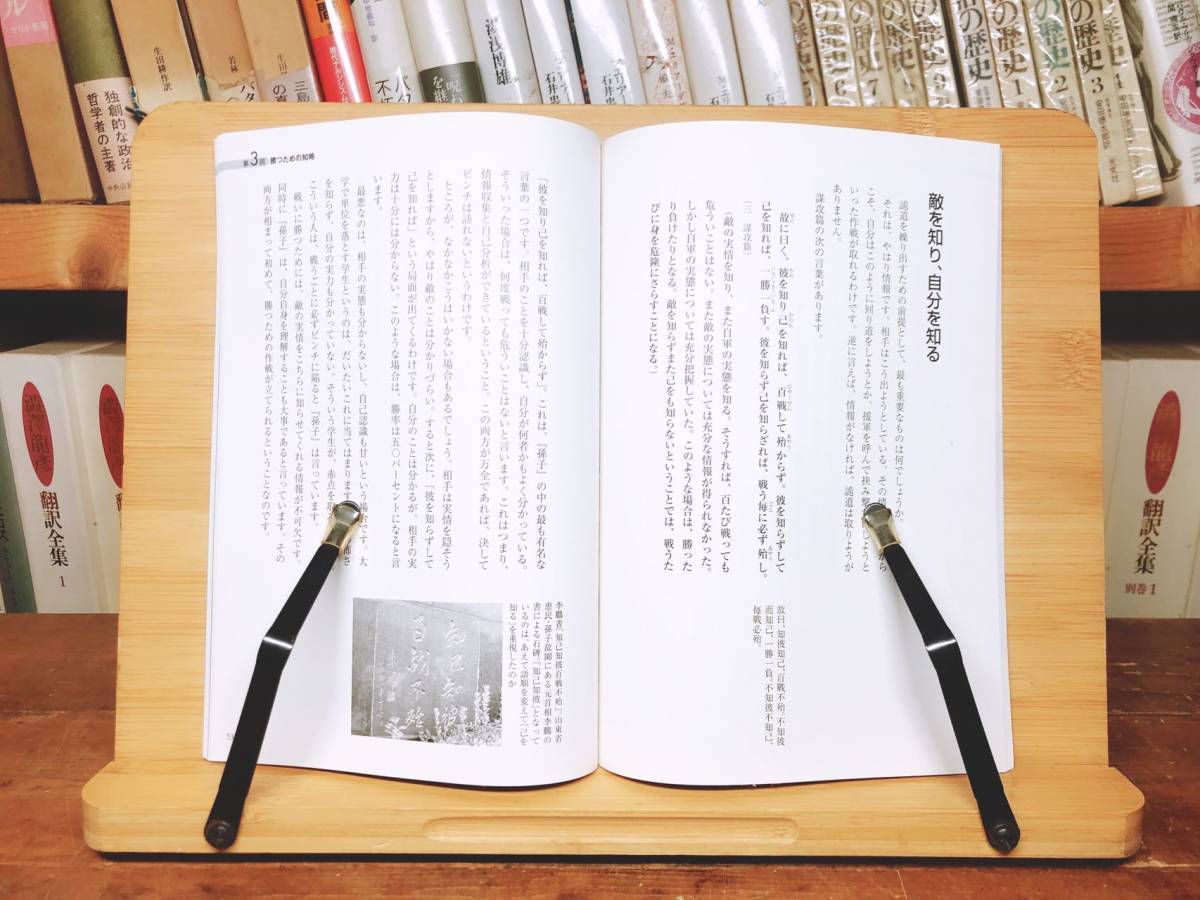 敵を知り、自分を知る
詭道を繰り出すための前提として、最も重要なものは何でしょうか。
それは、やはり情報です。相手はこう出ようとしている、その情
こそ、自分はこのように回り道をしようとか、援軍を呼んで挟み撃
しようと
いった作戦が取れるわけです。逆に言えば、情報がなければ、詭道は取りようが
ありません。
謀攻篇の次の言葉があります。
故に曰く、彼を知り己を知れば、百戦して殆からず。彼を知らずして
己を知れば、一勝一負す。彼を知らず己を知らざれば、戦う毎に必ず殆し。
(三 謀攻篇)
(敵の実情を知り、また自軍の実態を知る。そうすれば、百たび戦っても
危ういことはない。また敵の実態については充分な情報が得られなかった。
しかし自軍の実態については充分把握していた。このような場合は、勝った
り負けたりとなる。敵を知らずまた己をも知らないということでは、戦うた
びに身を危険にさらすことになる。)
故曰、知彼知己、百戦不殆。不知彼
而知己、一勝一負。不知彼不知己、
毎戦必殆。
第3回 勝つための知略
「彼を知り己を知れば、百戦して殆からず」。これは、『孫子』の中の最も有名な
言葉の一つです。相手のことを十分認識し、自分が何者かもよく分かっている。
そういった場合は、何度戦っても危ういことはないと言います。これはつまり、
情報収集と自己分析ができているということ。この両方が万全であれば、決して
ピンチは訪れないというわけです。
ところが、なかなかこうはいかない場合もあるでしょう。相手は実情を隠そう
としますから、やはり敵のことは分かりづらい。すると次に、「彼を知らずして
己を知れば」という局面が出てくるわけです。自分のことは分かるが、相手の実
力は十分には分からない。このような場合は、勝率は五〇パーセントになると言
います。
最悪なのは、相手の実態も分からないし、自己認識も甘いという場合です。大
学で単位を落とす学生というのは、だいたいこれに当てはまります
を知らず、自分の実力も分かっていない。そういう学生が、赤点を
こういう人は、戦うごとに必ずピンチに陥ると『孫子』は言っています。
戦いに勝つためには、敵の実情をこちらに知らせてくれる情報が不可欠です。
同時に『孫子』は、自分自身を理解することも大事であると言っています。その
両方が相まって初めて、勝つための作戦が立てられるということなのです。
李鵬書『知己知彼百戦不殆』。山東省
恵民・孫子故園にある元首相李鵬の
書による石碑。「知己知彼」となって
いるのは、あえて語順を変えて「己を
知る」を重視したのか
知己知彼
百戦不殆
独創的な政治
哲学者の主著
中央公
生田耕作訳
若林
生田
湯浅博雄
石井忠
の歴史
の歴史
の歴史
の歴史
の歴史 1
の歴史 2
の歴史 3
の歴史 4
6
7
8
9
澁澤龍彦
翻訳全集
1
翻訳全集
別巻1